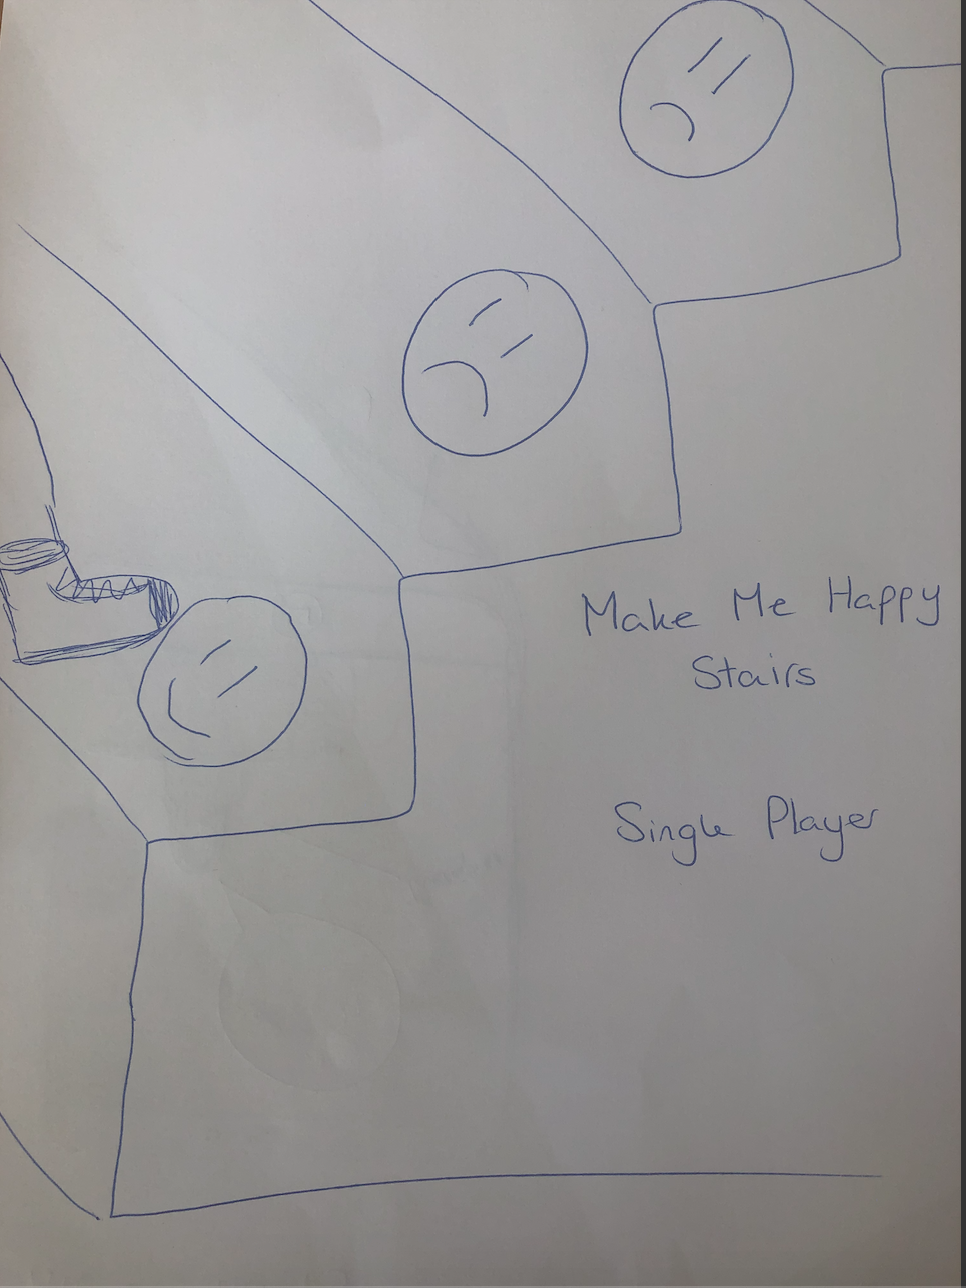 Make Me Happy
Stairs
Single Player